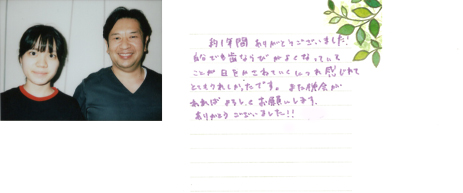 約1年間 ありがとうございました!
自分でも歯ならびがよくなっていく
ことが日をかさねていくにつれ感じれて
とてもうれしかったです。また機会が
あればよろしくお願いします。
ありがとうございました!!